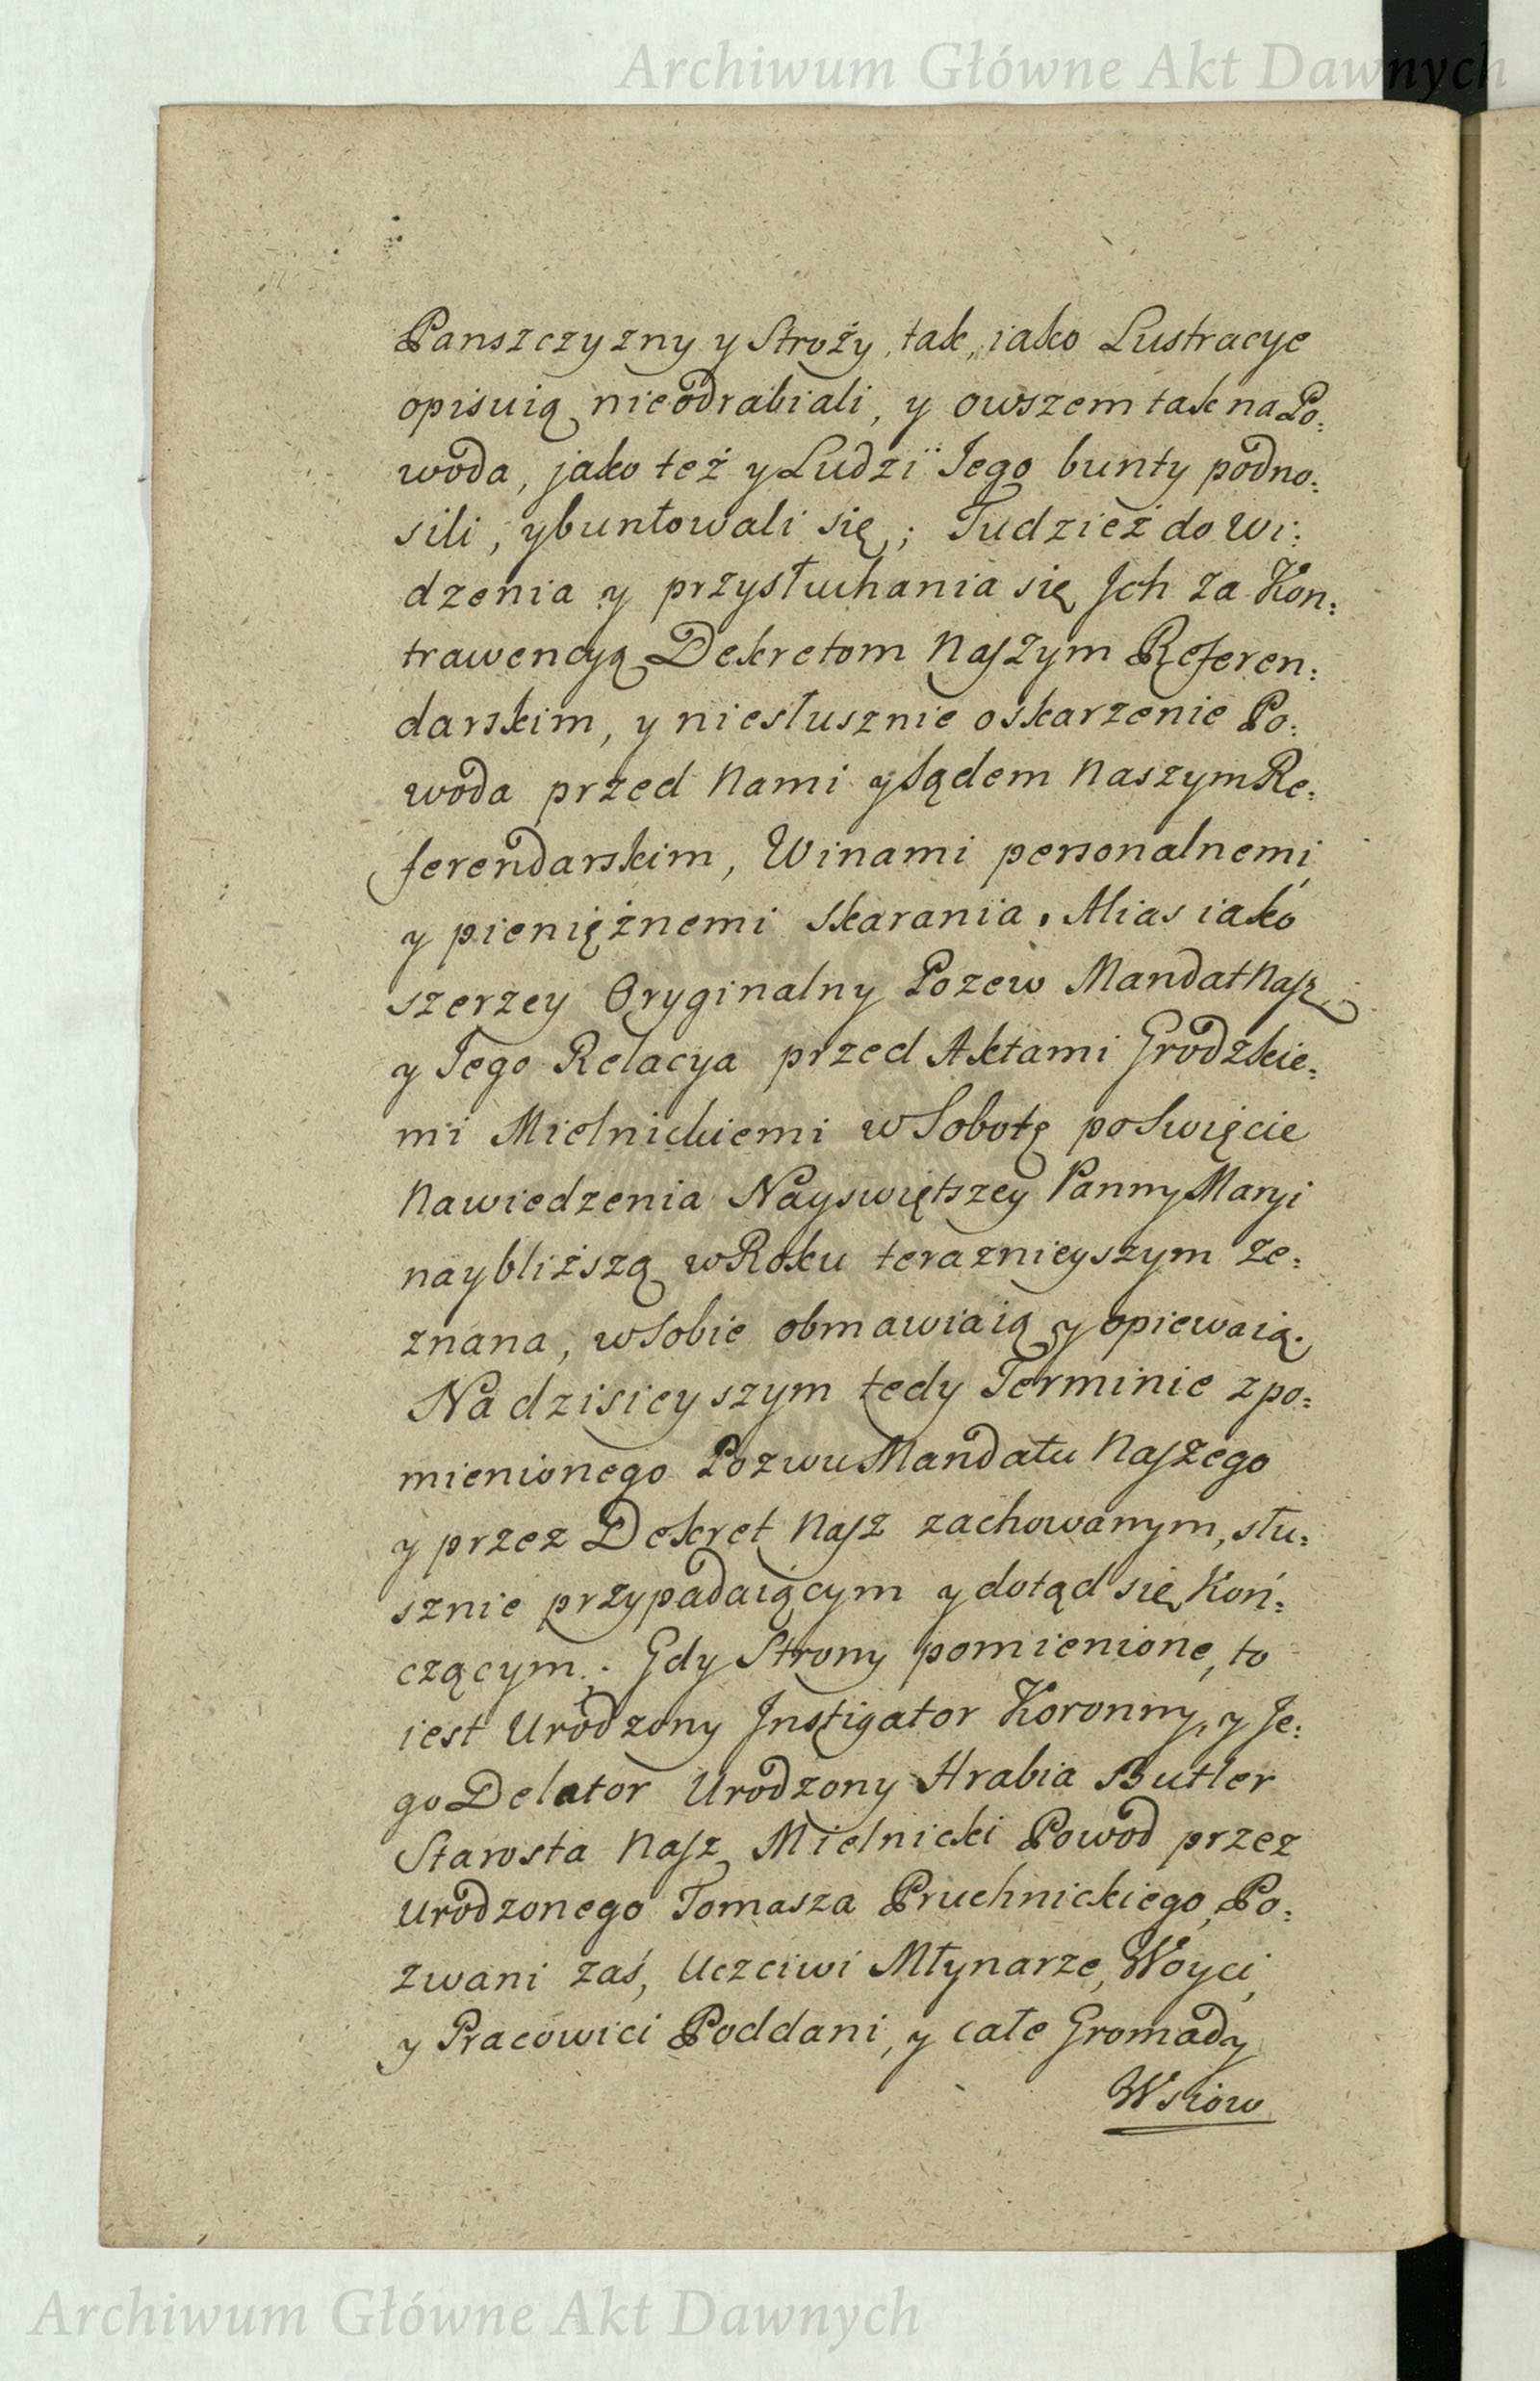 Archiwum Główne Akt Dawnych
Panszczyzny y Stroży, tak, iako Lustracye
opisuią nieodrabiali, y owszem tak na Po:
woda, jako też y Ludzi Jego bunty podno:
sili, y buntowali się; Tudzież do Wi:
dzenia y przysłuchania się Jch za Kon:
trawencyą Dekretom Naszym Referen:
darskim, y niesłusznie oskarzenie Po:
woda przed Nami y Sądem Naszym Re:
ferendarskim, Winami personalnemi,
y pieniężnemi skarania. Alias iako
szerzey Oryginalny Pozew Mandat Nasz
y Jego Relacya przed Aktami Grodzkie:
mi Mielnickiemi w Sobotę po Swięcie
Nawiedzenia Nayswiętszey Panny Maryi
naybliższą w Roku teraznieyszym ze:
znana, w Sobie obmawiaią y opiewaią.
Na dzisieyszym tedy Terminie z po:
mienionego Pozwu Mandatu Naszego
y przez Dekret Nasz zachowanym, słu:
sznie przypadaiącym y dotąd się Koń:
czącym. Gdy Strony pomienione, to
iest Urodzony Jnstigator Koronny, y Je:
go Delator Urodzony Hrabia Butler
Starosta Nasz Mielnicki Powod przez
Urodzonego Tomasza Pruchnickiego, Po:
zwani zaś, Uczciwi Młynarze, Woyci,
y Pracowici Poddani, y całe Gromady
Wsiow
Archiwum Główne Akt Dawnych